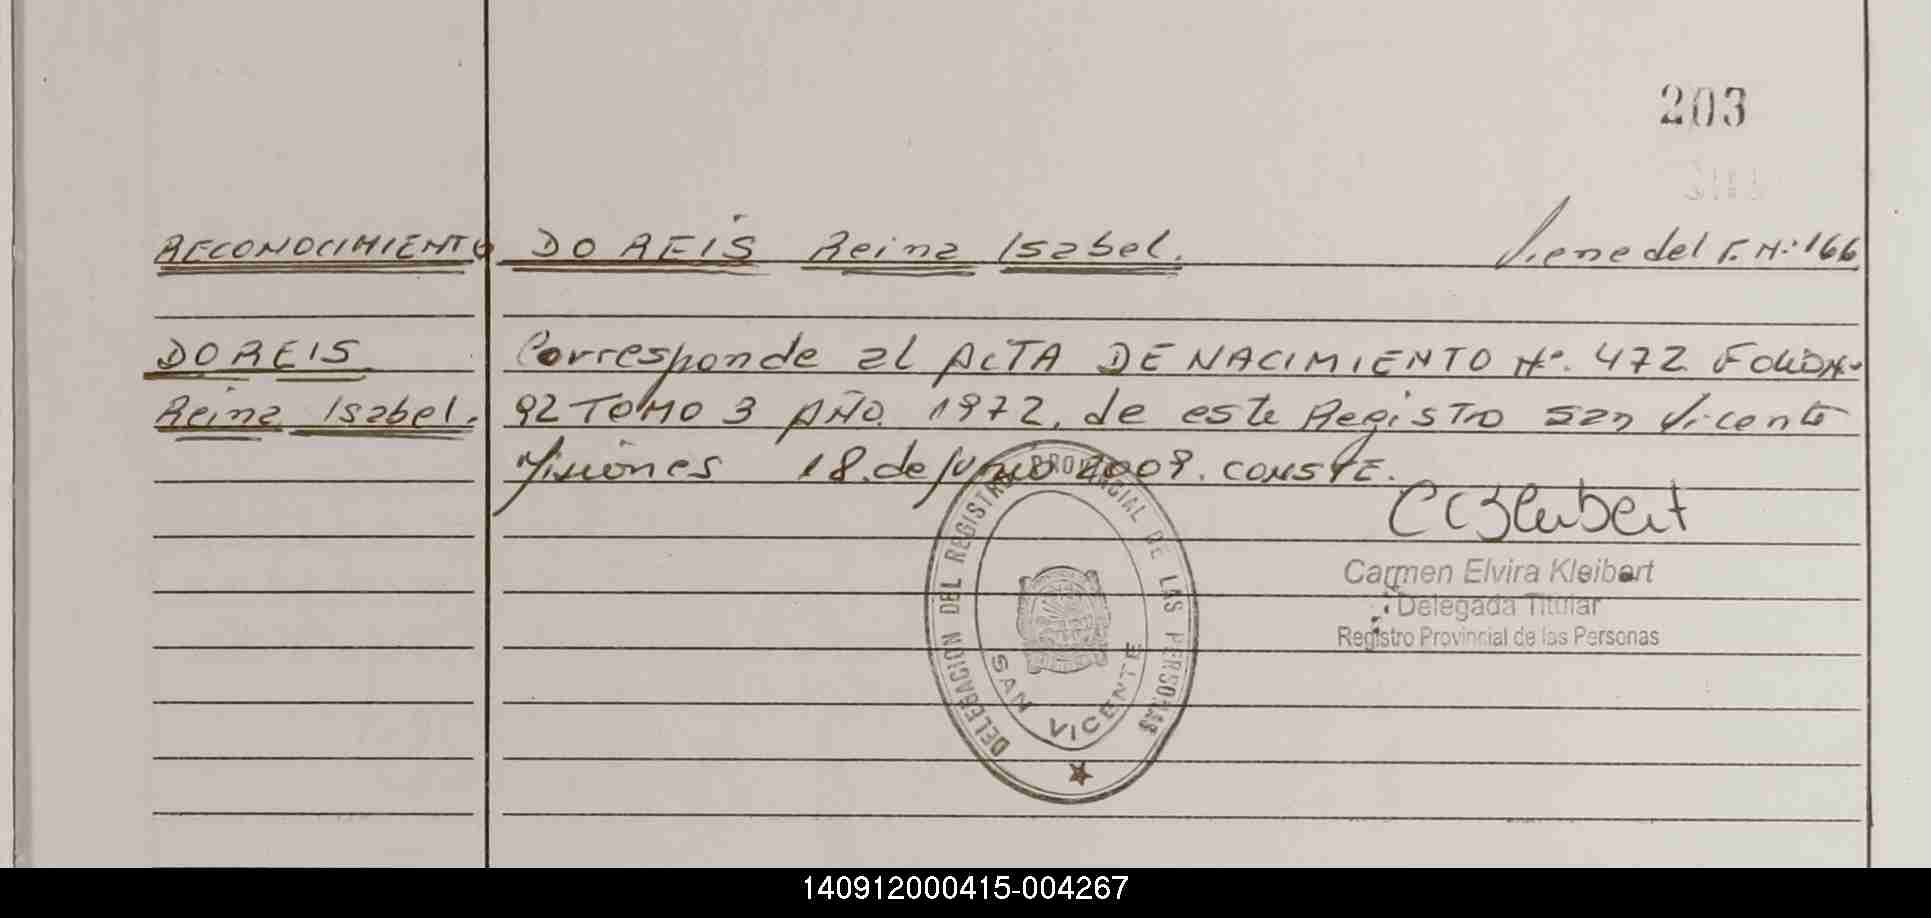 203
RECONOCIMIENTO DO REIS Reina Isabel. Viene del F. Nº 166
DO REIS
Reina Isabel.
Corresponde al ACTA DE NACIMIENTO Nº. 472 FOLIO Nº
92 TOMO 3 AÑO 1972. de este Registro San Vicente
Misiones 18. de Junio 2009. CONSTE.
Carmen Elvira Kleibert
Delegada Titular
Registro Provincial de las Personas
DELEGACION DEL REGISTRO PROVINCIAL DE LAS PERSONAS
SAN VICENTE
140912000415-004267